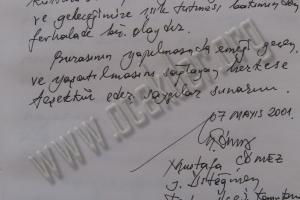 ve geleceğimize ışık tutması bakımından
fevkalade bir olaydır.
Burasının yapılmasında emeği geçen
ve yaşatılmasını sağlayan herkese
teşekkür eder saygılar sunarım.
07 MAYIS 2001
Mustafa GÖMEZ
J. Üsteğmen